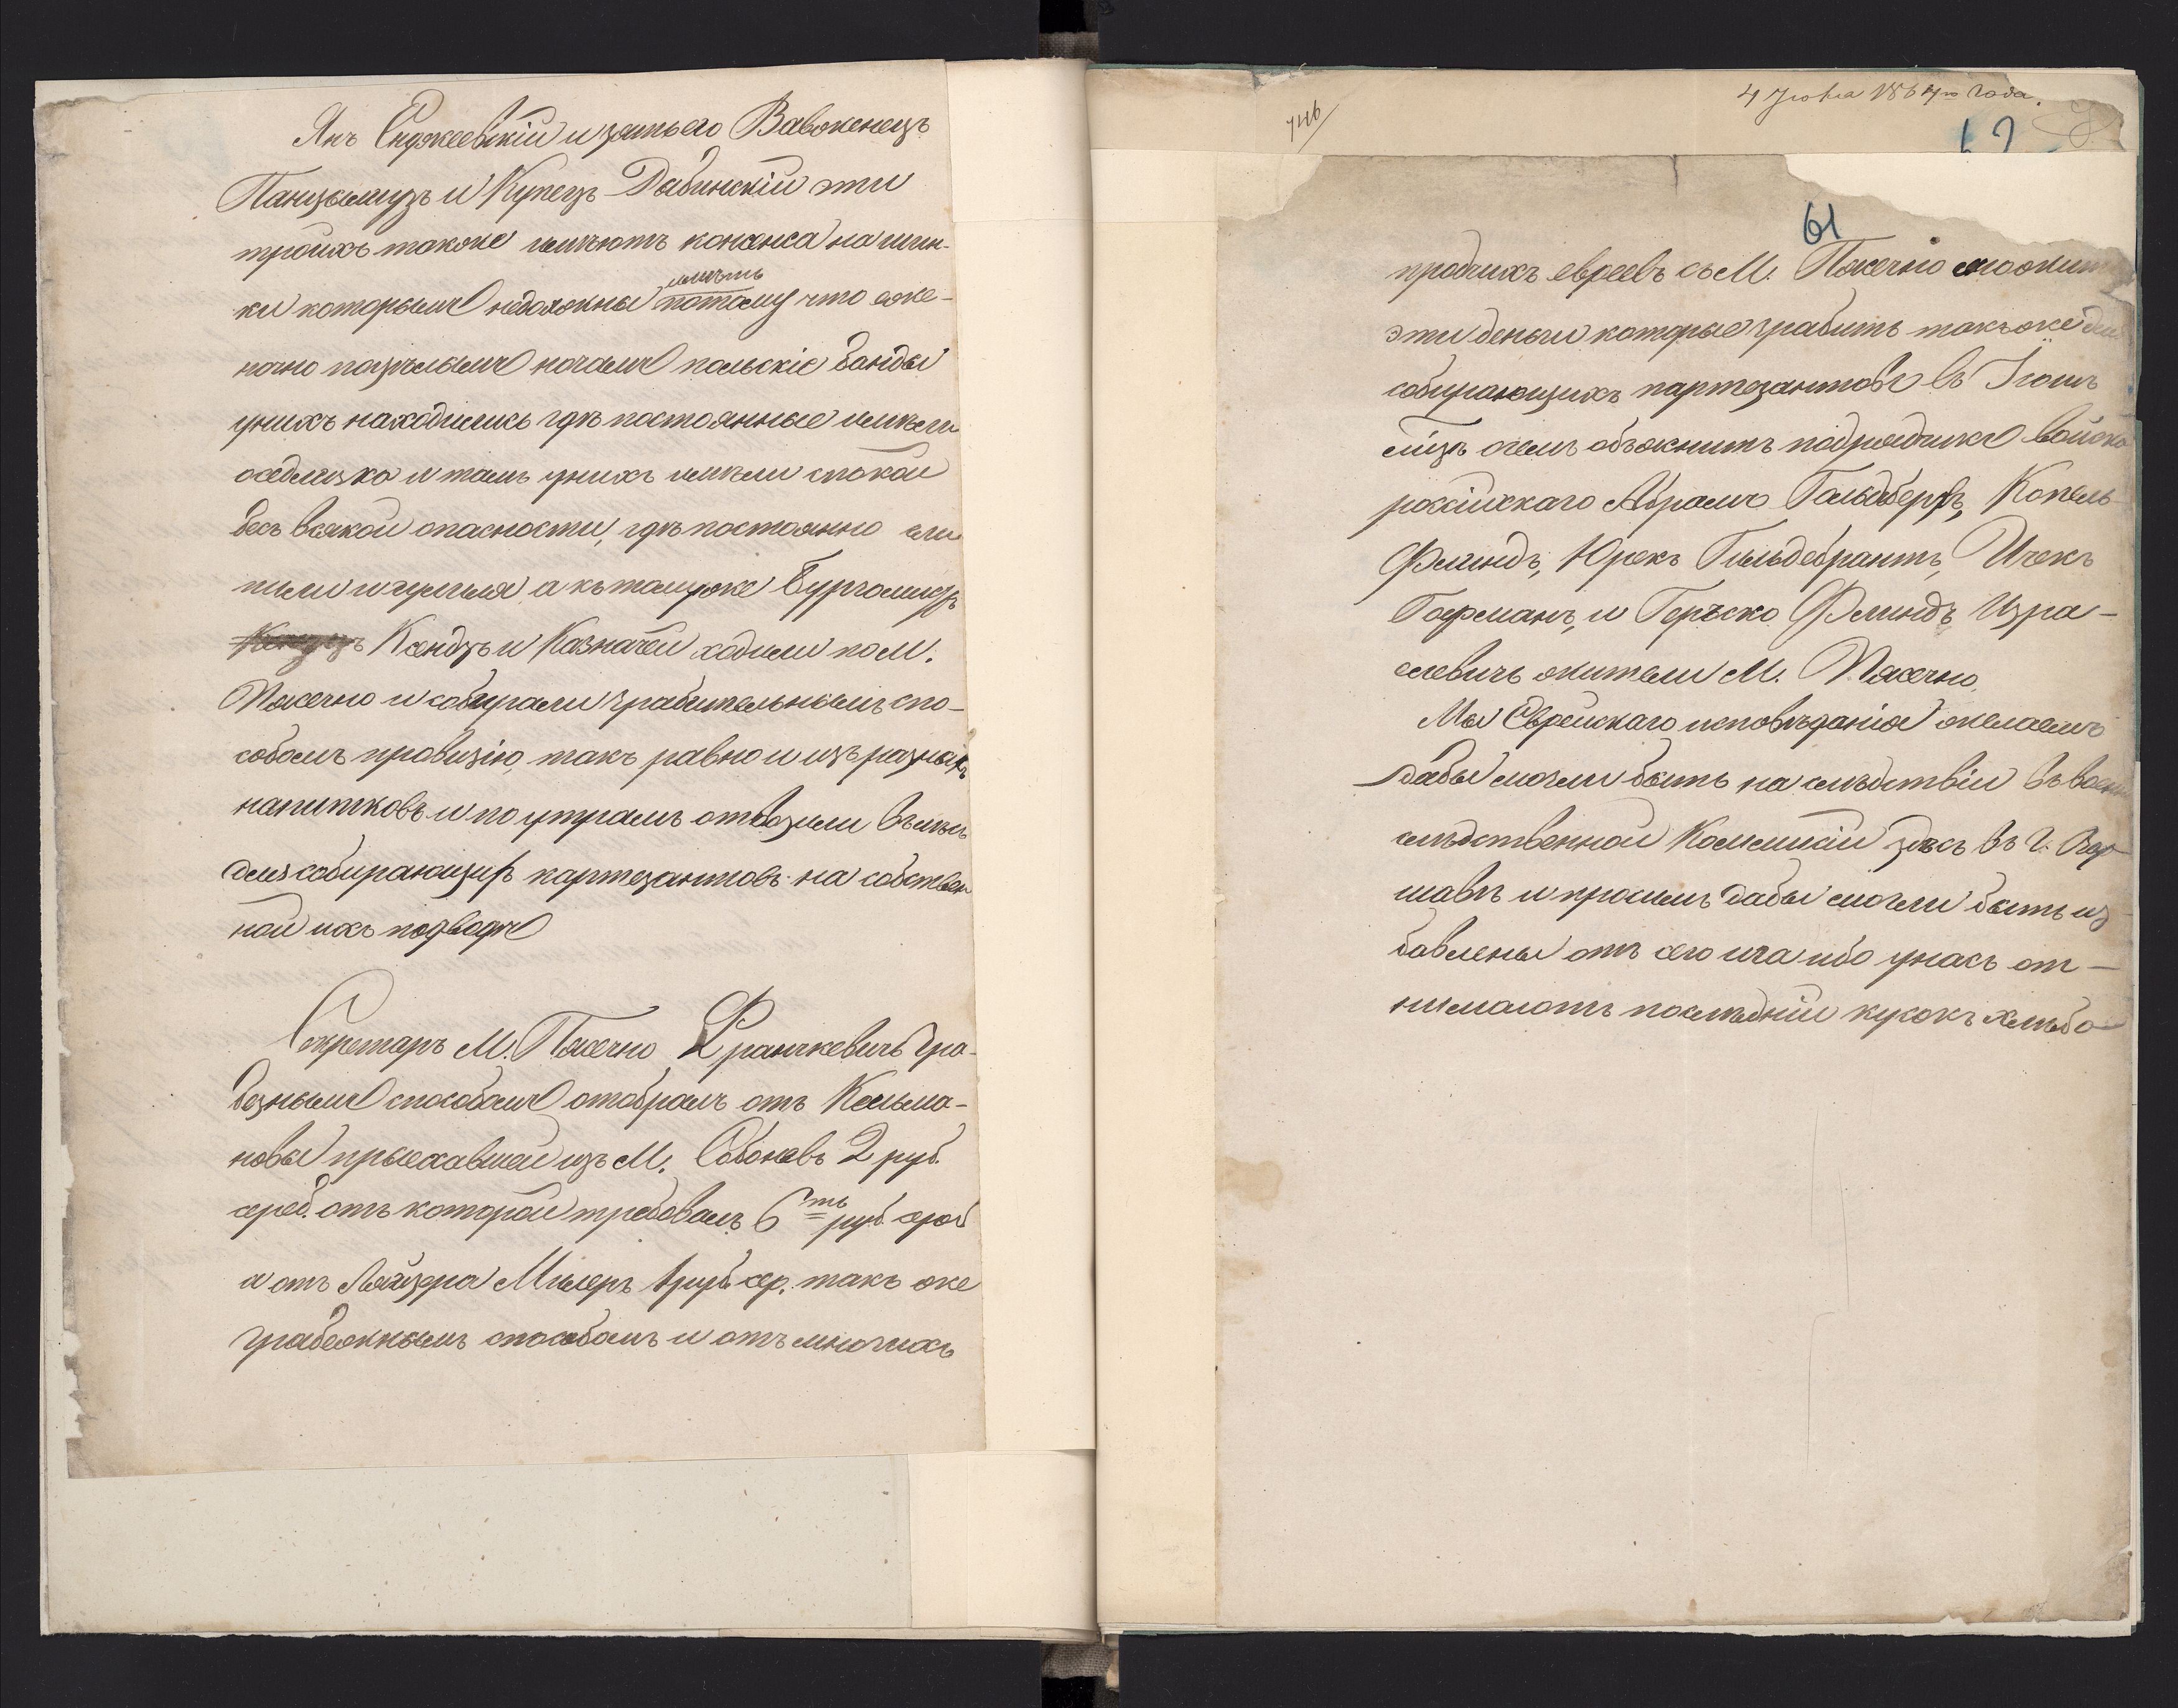 Янъ Енджеевскій и зять его Вавоженецъ
Панцымузъ и Купецъ Дабинскій эти
троихъ также имѣютъ консенса на шин-
ки которымъ недолжны имѣть потому что еже-
ночно поцѣлымъ ночамъ польскіе банды
унихъ находились гдѣ постоянные имѣли
оседлиско и тамъ унихъ имѣли спокой
безъ всякой опасности, гдѣ постоянно ели
пили и гуляли а къ томуже Бургомистръ
Ксендзъ и Казначей ходили по М.
Пясечно и собирали грабительнымъ спо-
собомъ провизію, такъ равно и изъ разныхъ
напитковъ и по утрамъ отвозили въ лѣсъ
для собирающихъ партезантовъ на собствен
ной ихъ подводѣ
Секретарь М. Пясечно Франчкевичь гра-
безнымъ способомъ отобралъ отъ Кальма-
новы прыехавшей изъ М. 2 руб.
сереб. отъ которой требовалъ 6ть руб. среб
а отъ Лейзера Милеръ 1 руб сер. такъ же
грабежнымъ способомъ и отъ многихъ
746
4 Іюня 1864го Года.
61
прочихъ евреевъ съ М. Пясечно
эти деньги которые грабитъ такъже для
собирающихъ партезантовъ въ
о чемъ объяснитъ подрядчикъ войска
россійскаго Абрамъ Гольдбергъ, Копель
Флиндъ, Юрекъ Гильдебрантъ, Ичекъ
Гофманъ, и Геръско Флиндъ Изра-
елевичъ жители М. Пясечно.
Мы Еврейскаго исповѣданія желаемъ
дабы могли быть на слѣдствіи въ воен
слѣдственной Коммисіи здѣсъ въ г. Вар
шавѣ и просимъ дабы могли быть из
бавлены отъ сего ига ибо унасъ от-
нимаютъ послѣдній кусокъ хлѣба